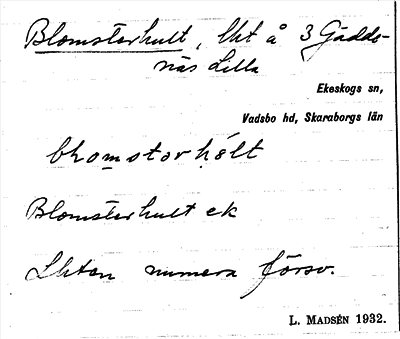 Blomsterhult, Lht å 3 Gädde-
näs Lilla
Ekeskogs sn,
Vadsbo hd, Skaraborgs län
blomstorhélt
Blomsterhult ek
Lhten numera försv.
L. MADSÉN 1932.